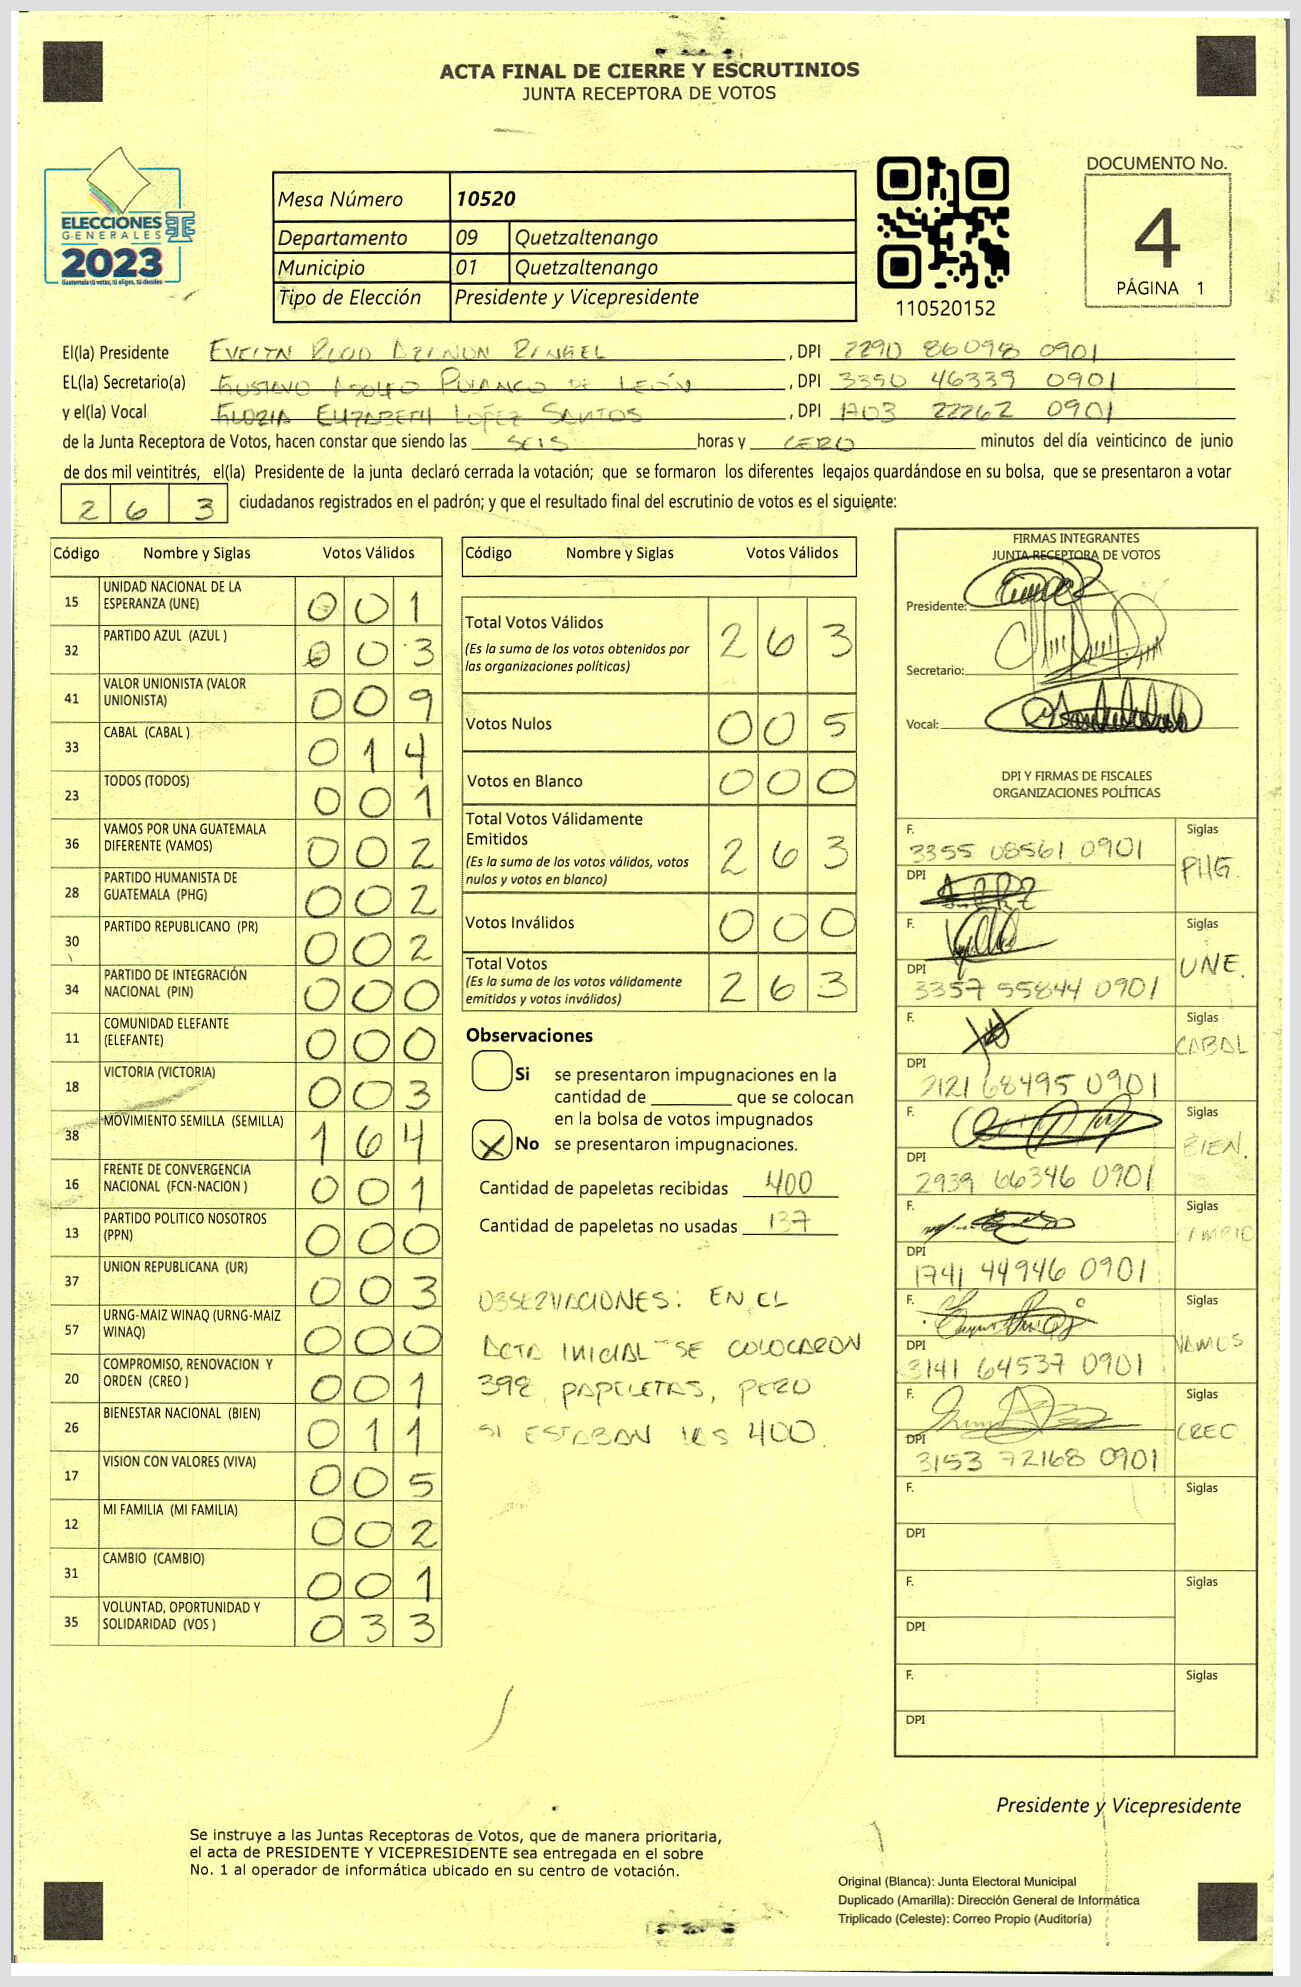 ACTA FINAL DE CIERRE Y ESCRUTINIOS
JUNTA RECEPTORA DE VOTOS
ELECCIONES
GENERALES
2023
Mesa Número 10520
Departamento 09 Quetzaltenango
Municipio 01 Quetzaltenango
Tipo de Elección Presidente y Vicepresidente
110520152
DOCUMENTO No.
4
PÁGINA 1
El(la) Presidente EVELYN, DPI 2290 86098 0901
EL(la) Secretario(a) GUSTAVO ADOLFO POLANCO DE LEÓN, DPI 3350 46339 0901
y el(la) Vocal GLORIA ELIZABETH LÓPEZ SANTOS, DPI 1703 22262 0901
de la Junta Receptora de Votos, hacen constar que siendo las SEIS horas y CERO minutos del día veinticinco de junio
de dos mil veintitrés, el(la) Presidente de la junta declaró cerrada la votación; que se formaron los diferentes legajos guardándose en su bolsa, que se presentaron a votar
263 ciudadanos registrados en el padrón; y que el resultado final del escrutinio de votos es el siguiente:
Código Nombre y Siglas Votos Válidos
15 UNIDAD NACIONAL DE LA ESPERANZA (UNE) 001
32 PARTIDO AZUL (AZUL ) 003
41 VALOR UNIONISTA (VALOR UNIONISTA) 009
33 CABAL (CABAL ) 014
23 TODOS (TODOS) 001
36 VAMOS POR UNA GUATEMALA DIFERENTE (VAMOS) 002
28 PARTIDO HUMANISTA DE GUATEMALA (PHG) 002
30 PARTIDO REPUBLICANO (PR) 002
34 PARTIDO DE INTEGRACIÓN NACIONAL (PIN) 000
11 COMUNIDAD ELEFANTE (ELEFANTE) 000
18 VICTORIA (VICTORIA) 003
38 MOVIMIENTO SEMILLA (SEMILLA) 164
16 FRENTE DE CONVERGENCIA NACIONAL (FCN-NACION ) 001
13 PARTIDO POLITICO NOSOTROS (PPN) 000
37 UNION REPUBLICANA (UR) 003
57 URNG-MAIZ WINAQ (URNG-MAIZ WINAQ) 000
20 COMPROMISO, RENOVACION Y ORDEN (CREO ) 001
26 BIENESTAR NACIONAL (BIEN) 011
17 VISION CON VALORES (VIVA) 005
12 MI FAMILIA (MI FAMILIA) 002
31 CAMBIO (CAMBIO) 001
35 VOLUNTAD, OPORTUNIDAD Y SOLIDARIDAD (VOS ) 033
Código Nombre y Siglas Votos Válidos
Total Votos Válidos 263
(Es la suma de los votos obtenidos por
las organizaciones políticas)
Votos Nulos 005
Votos en Blanco 000
Total Votos Válidamente
Emitidos 263
(Es la suma de los votos válidos, votos
nulos y votos en blanco)
Votos Inválidos 000
Total Votos 263
(Es la suma de los votos válidamente
emitidos y votos inválidos)
Observaciones
Si se presentaron impugnaciones en la
cantidad de ________ que se colocan
en la bolsa de votos impugnados
X No se presentaron impugnaciones.
Cantidad de papeletas recibidas 400
Cantidad de papeletas no usadas 137
OBSERVACIONES: EN EL
ACTA INICIAL SE COLOCARON
398 PAPELETAS, PERO
SI ESTABAN LAS 400
FIRMAS INTEGRANTES
JUNTA RECEPTORA DE VOTOS
Presidente:
Secretario:
Vocal:
DPI Y FIRMAS DE FISCALES
ORGANIZACIONES POLÍTICAS
F. 3355 08561 0901 Siglas
DPI PHG.
F. Siglas
DPI 3357 55844 0901 UNE.
F. Siglas
DPI 2121 68495 0901 CABAL
F. Siglas
DPI 2939 66346 0901 BIEN.
F. Siglas
DPI 1741 44946 0901 CAMBIO
F. Siglas
DPI 3141 64537 0901 VAMOS
F. Siglas
DPI 3153 72168 0901 CREO
F. Siglas
DPI
F. Siglas
DPI
F. Siglas
DPI
Presidente y Vicepresidente
Se instruye a las Juntas Receptoras de Votos, que de manera prioritaria,
el acta de PRESIDENTE Y VICEPRESIDENTE sea entregada en el sobre
No. 1 al operador de informática ubicado en su centro de votación.
Original (Blanca): Junta Electoral Municipal
Duplicado (Amarilla): Dirección General de Informática
Triplicado (Celeste): Correo Propio (Auditoría)